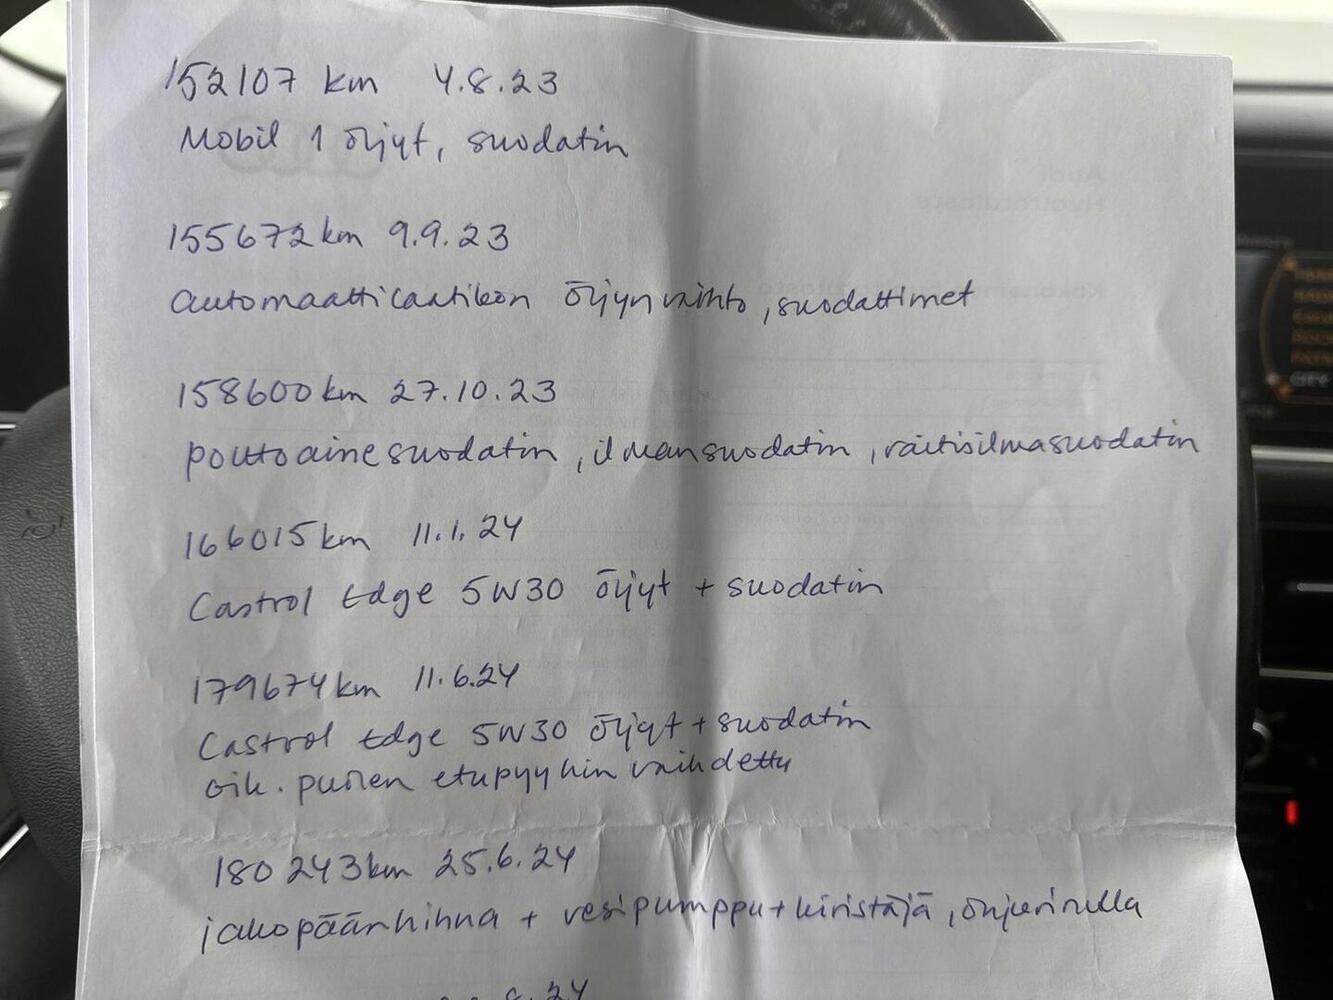 152107 km 4.8.23
Mobil 1 öljyt, suodatin
155672 km 9.9.23
automaattilaatikon öljyn vaihto, suodattimet
158600 km 27.10.23
polttoainesuodatin, ilmansuodatin, raitisilmasuodatin
166015 km 11.1.24
Castrol Edge 5W30 öljyt + suodatin
179674 km 11.6.24
Castrol Edge 5W30 öljyt + suodatin
oik. puolen etupyyhin vaihdettu
180 243 km 25.6.24
jakopäänhihna + vesipumppu + kiristäjä, ohjurirulla